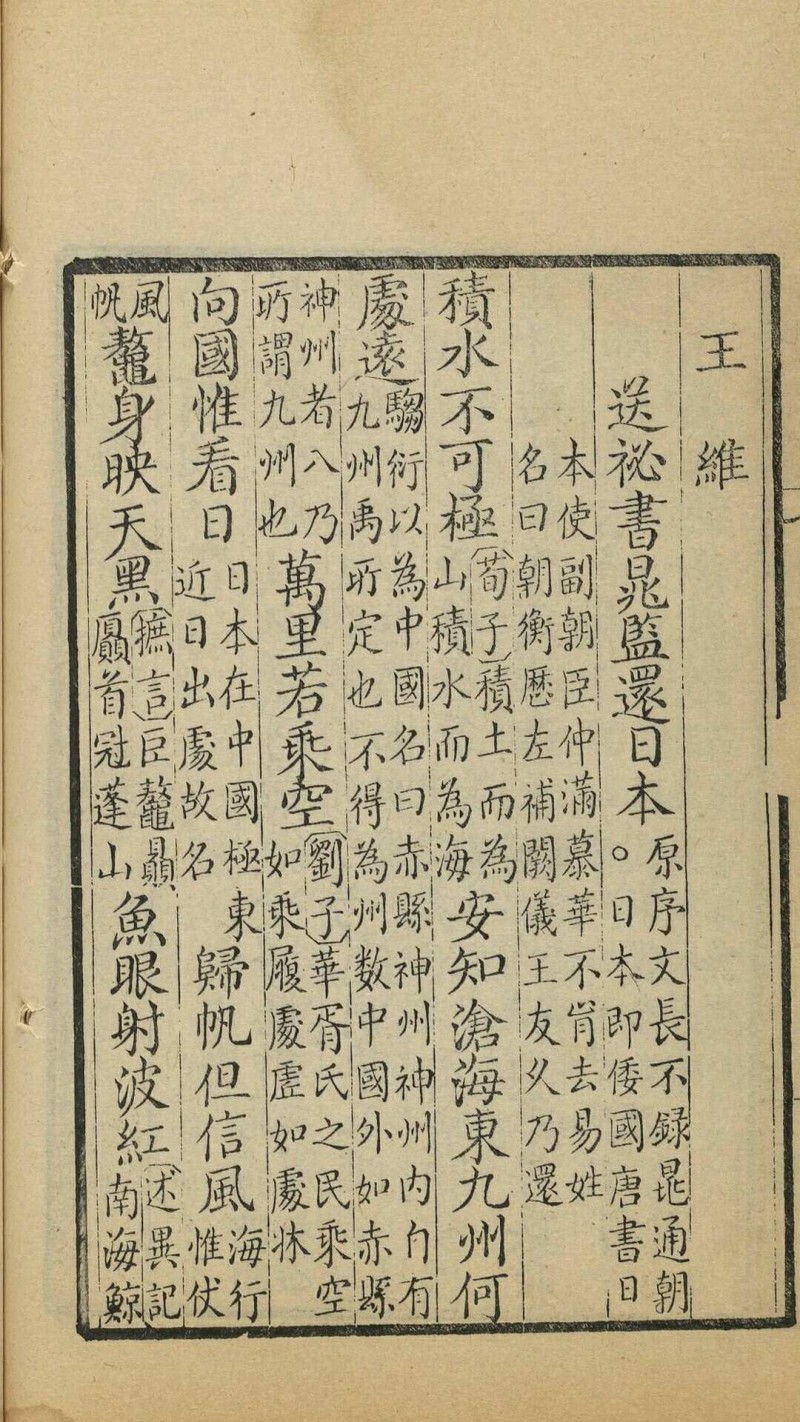 王維
送祕書晁監還日本。原序文長不録晁通朝日本即倭國唐書日
本使副朝臣仲滿慕華不肯去易姓名曰朝衡歷左補闕儀王友久乃還
積水不可極(荀子)積土而為山積水而為海安知滄海東九州何
處遠騶衍以為中國名曰赤縣神州神州内有九州禹所定也不得為州数中國外如赤縣
神州者八乃所謂九州也萬里若乘空(劉子)華胥氏之民乘空如乘履處虛如處牀
向國惟看日日本在中國極東近日出處故名歸帆但信風海行惟伏
風帆鰲身映天黑(摭言)巨鰲贔屭首冠蓬山魚眼射波紅(述異記)南海鯨